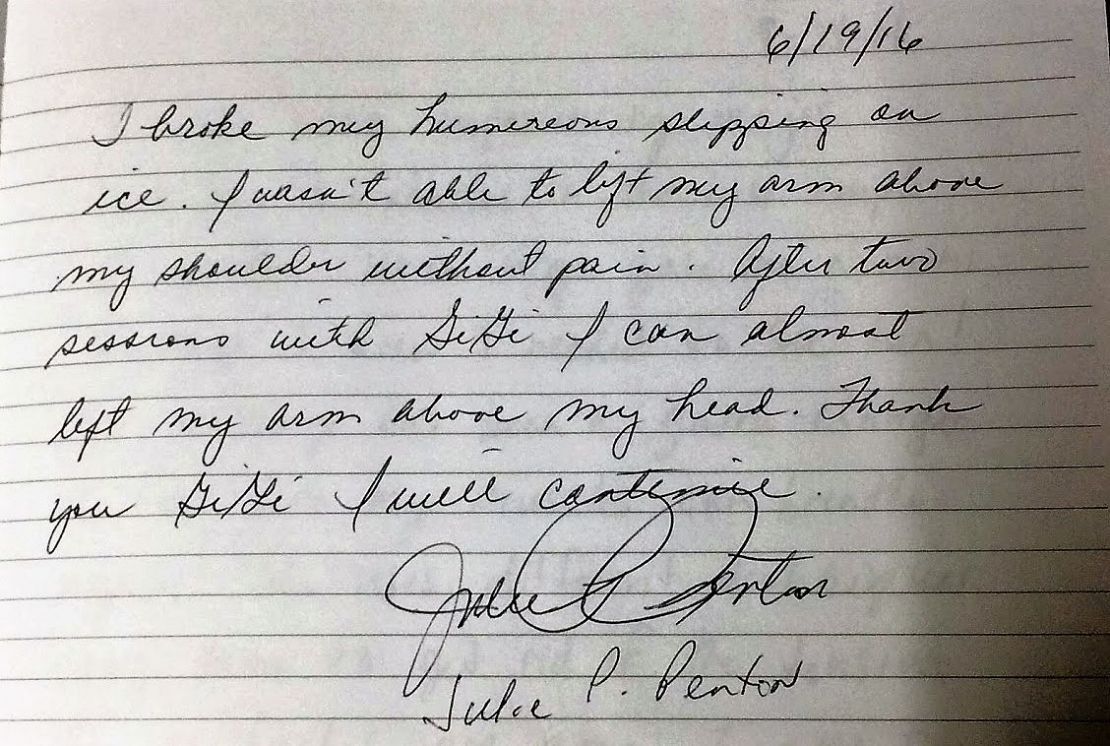 6/19/16
I broke my humereous slipping on
ice. I wasn't able to lift my arm above
my shoulder without pain. After two
sessions with GiGi I can almost
left my arm above my head. Thank
you GiGi I will continue.
Julie P Penton
Julie P. Penton